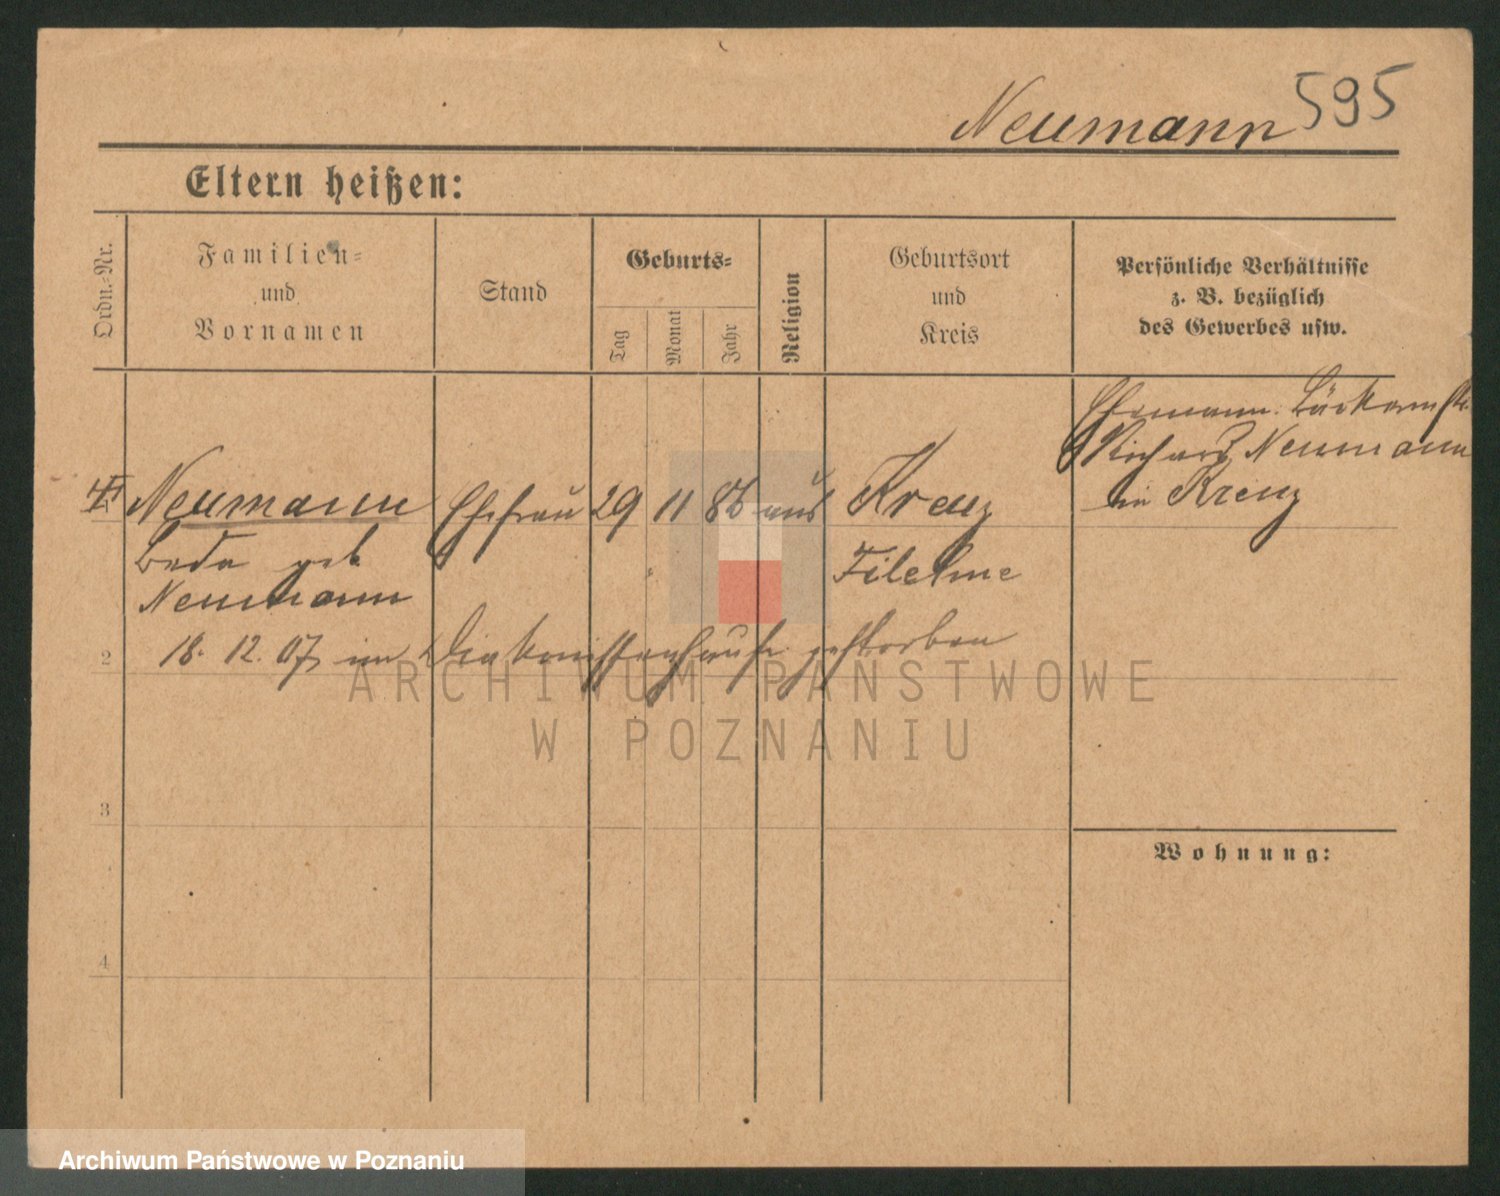 Neumann 595
Eltern heißen:
Ordn.-Nr.
Familien-
und
Vornamen
Stand
Geburts-
Tag
Monat
Jahr
Religion
Geburtsort
und
Kreis
Persönliche Verhältnisse
z. B. bezüglich
des Gewerbes usw.
Ehemann: Bäckermstr.
Richard Neumann
in Kreuz
Neumann Ehefrau 29 11 86 Kreuz
geb Filehne
Neumann
18. 12. 07 im Diakonissenhause gestorben
2
3
4
Wohnung:
ARCHIWUM PAŃSTWOWE
W POZNANIU
Archiwum Państwowe w Poznaniu